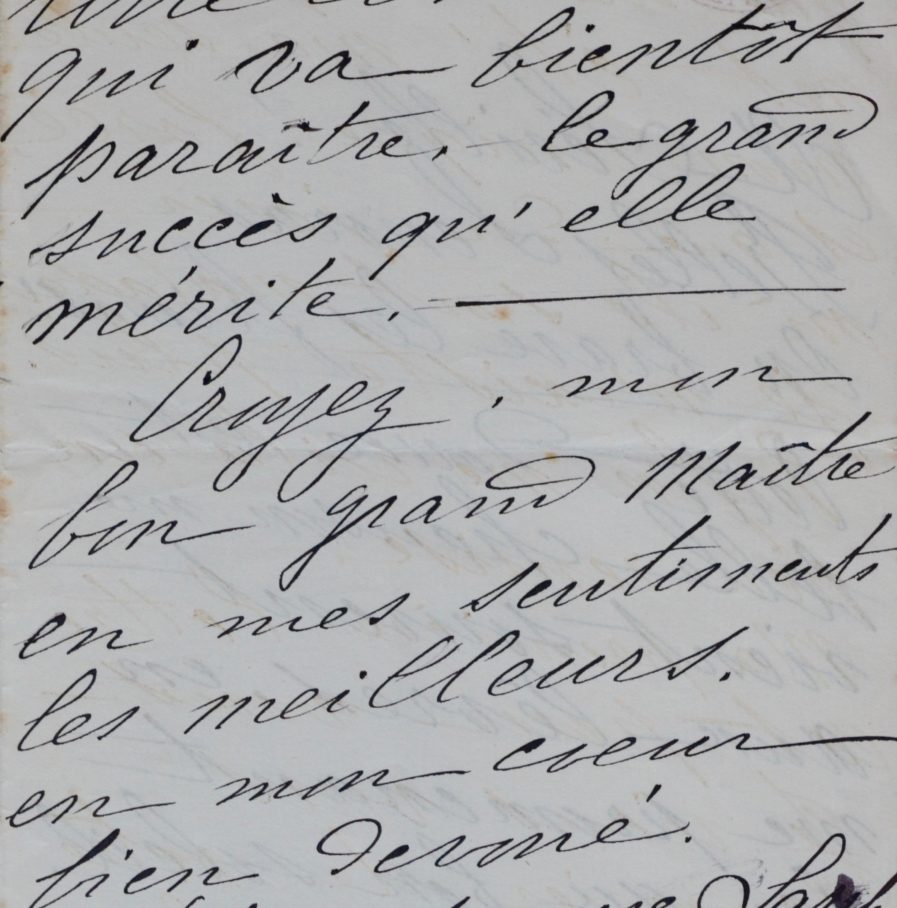 qui va bientôt
paraître. – le grand
succès qu'elle
mérite. –
Croyez, mon
bon grand Maître
en mes sentiments
les meilleurs.
en mon coeur
bien dévoué.